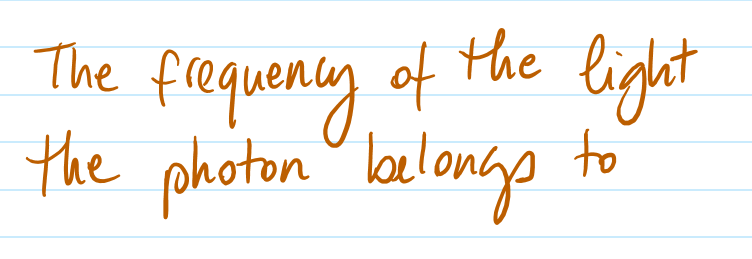 The frequency of the light
the photon belongs to